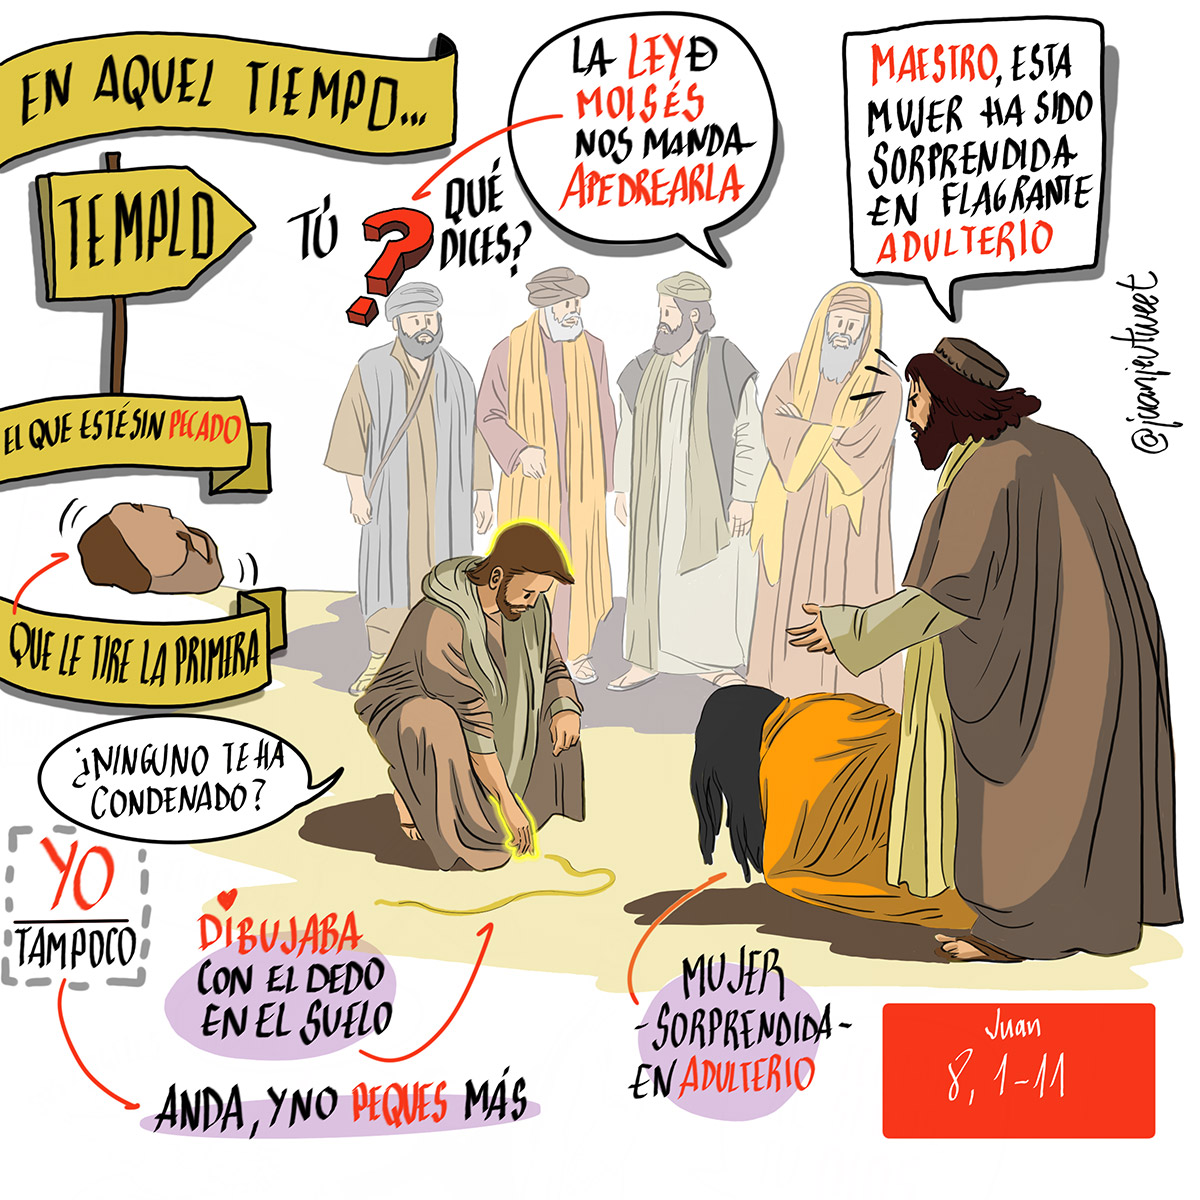 EN AQUEL TIEMPO...
TEMPLO
TÚ
?
QUÉ
DICES?
LA LEY DE
MOISÉS
NOS MANDA
APEDREARLA
MAESTRO, ESTA
MUJER HA SIDO
SORPRENDIDA
EN FLAGRANTE
ADULTERIO
@juanjevltweet
EL QUE ESTÉ SIN PECADO
QUE LE TIRE LA PRIMERA
¿NINGUNO TE HA
CONDENADO?
YO
TAMPOCO
DIBUJABA
CON EL DEDO
EN EL SUELO
ANDA, Y NO PEQUES MÁS
MUJER
-SORPRENDIDA-
EN ADULTERIO
Juan
8, 1-11